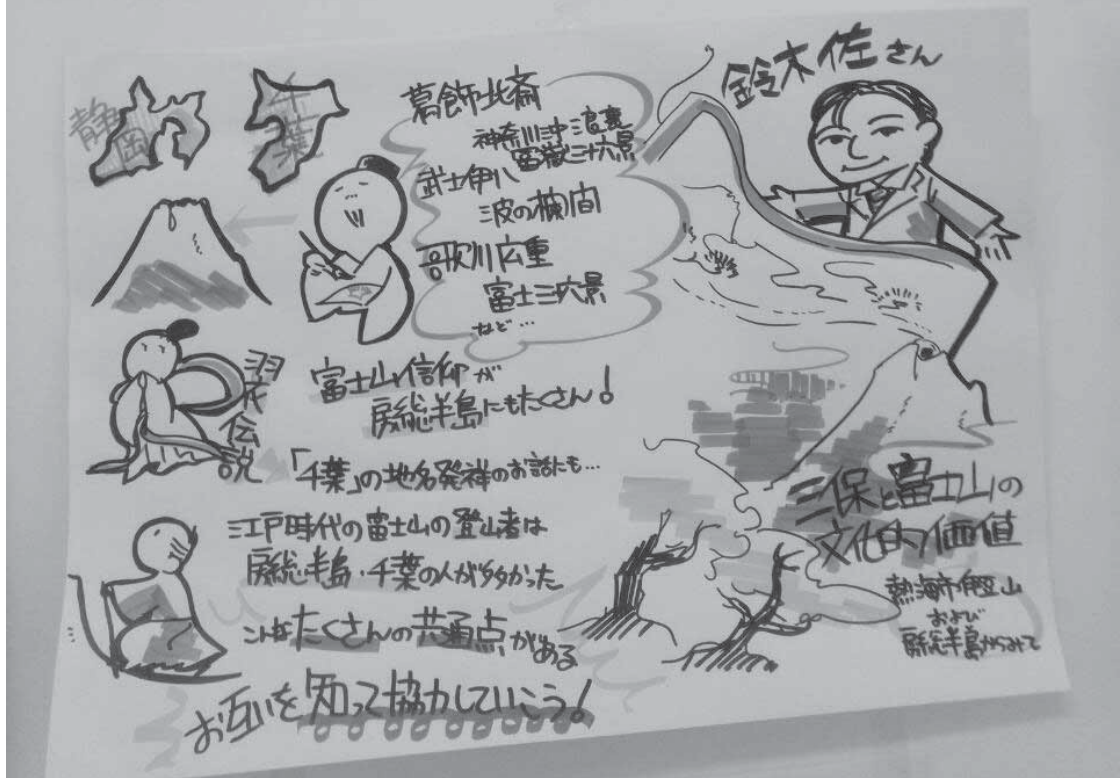 鈴木佐さん
静岡
千葉
葛飾北斎
神奈川沖浪裏
冨嶽三十六景
武士伊八
波の欄間
歌川広重
富士三六景
など…
羽衣伝説
富士山信仰が
房総半島にもたくさん!
「千葉」の地名発祥のお話にも…
江戸時代の富士山の登山者は
房総半島・千葉の人が多かった
こんなたくさんの共通点がある
お互いを知って協力していこう!
三保と富士山の
文化的価値
熱海市
および
房総半島からみて